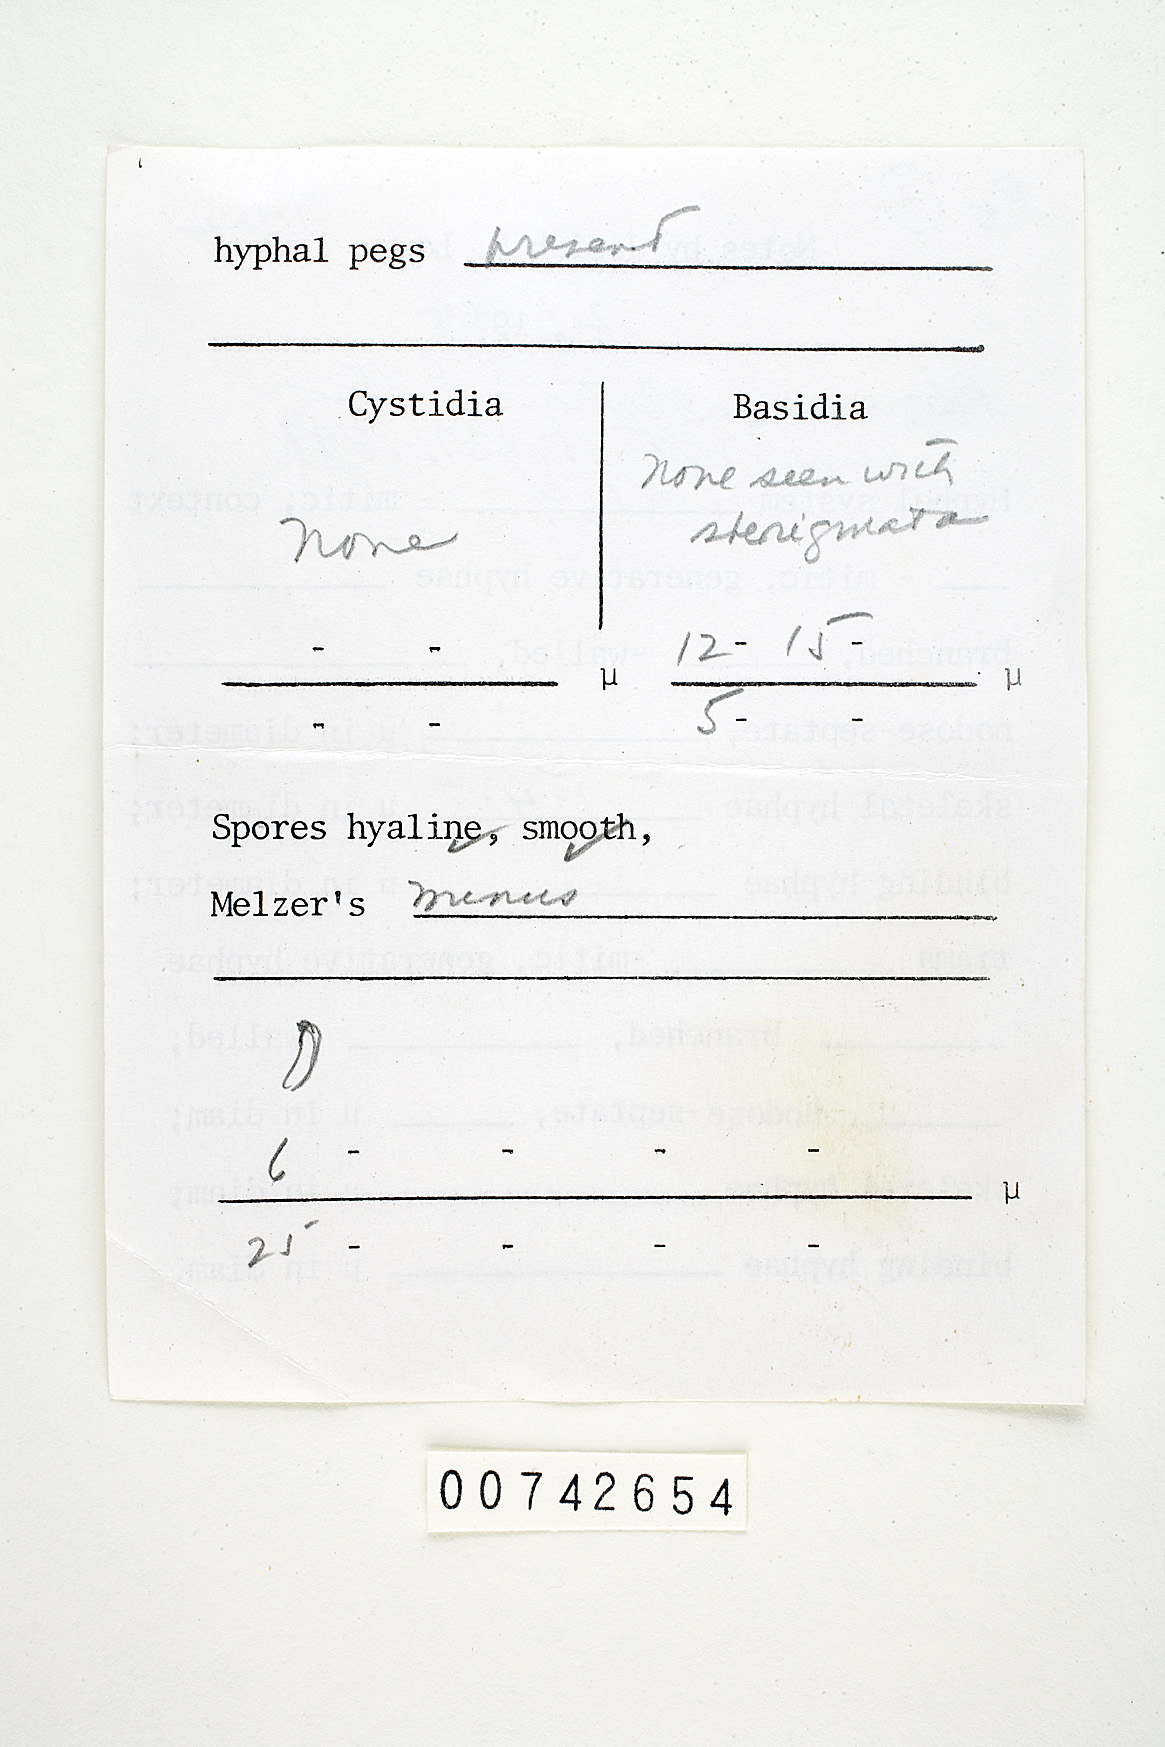 hyphal pegs present
Cystidia
Basidia
None seen with
None
sterigmata
- -
μ
12 - 15 -
μ
- -
5 - -
Spores hyaline, smooth,
Melzer's minus
6 - - - -
μ
25 - - - -
00742654